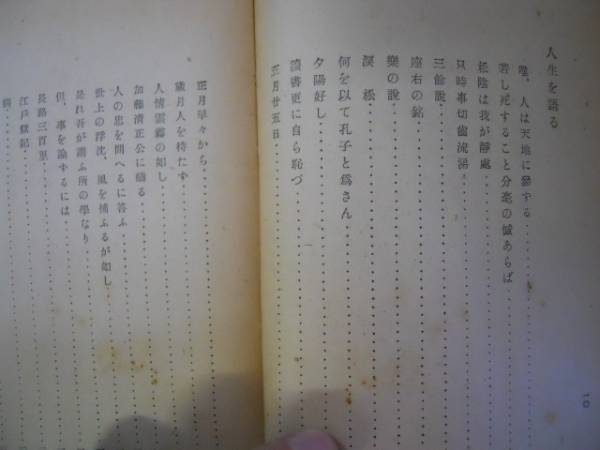 人生を語る
唯、人は天地に參する
若し死すること分毫の憾あらば
松陰は我が靜處
只時事切齒流涕
三餘說
座右の銘
樂の說
涙松
何を以て孔子と爲さん
夕陽好し
讀書更に自ら恥づ
正月廿五日
正月早々から
歲月人を待たず
人情雲霧の如し
加藤淸正公に禱る
人の忠を問へるに答ふ
世上の浮沈、風を捕ふるが如し
是れ吾が謂ふ所の學なり
但、事を論ずるには
長路三百里
江戶獄記
10